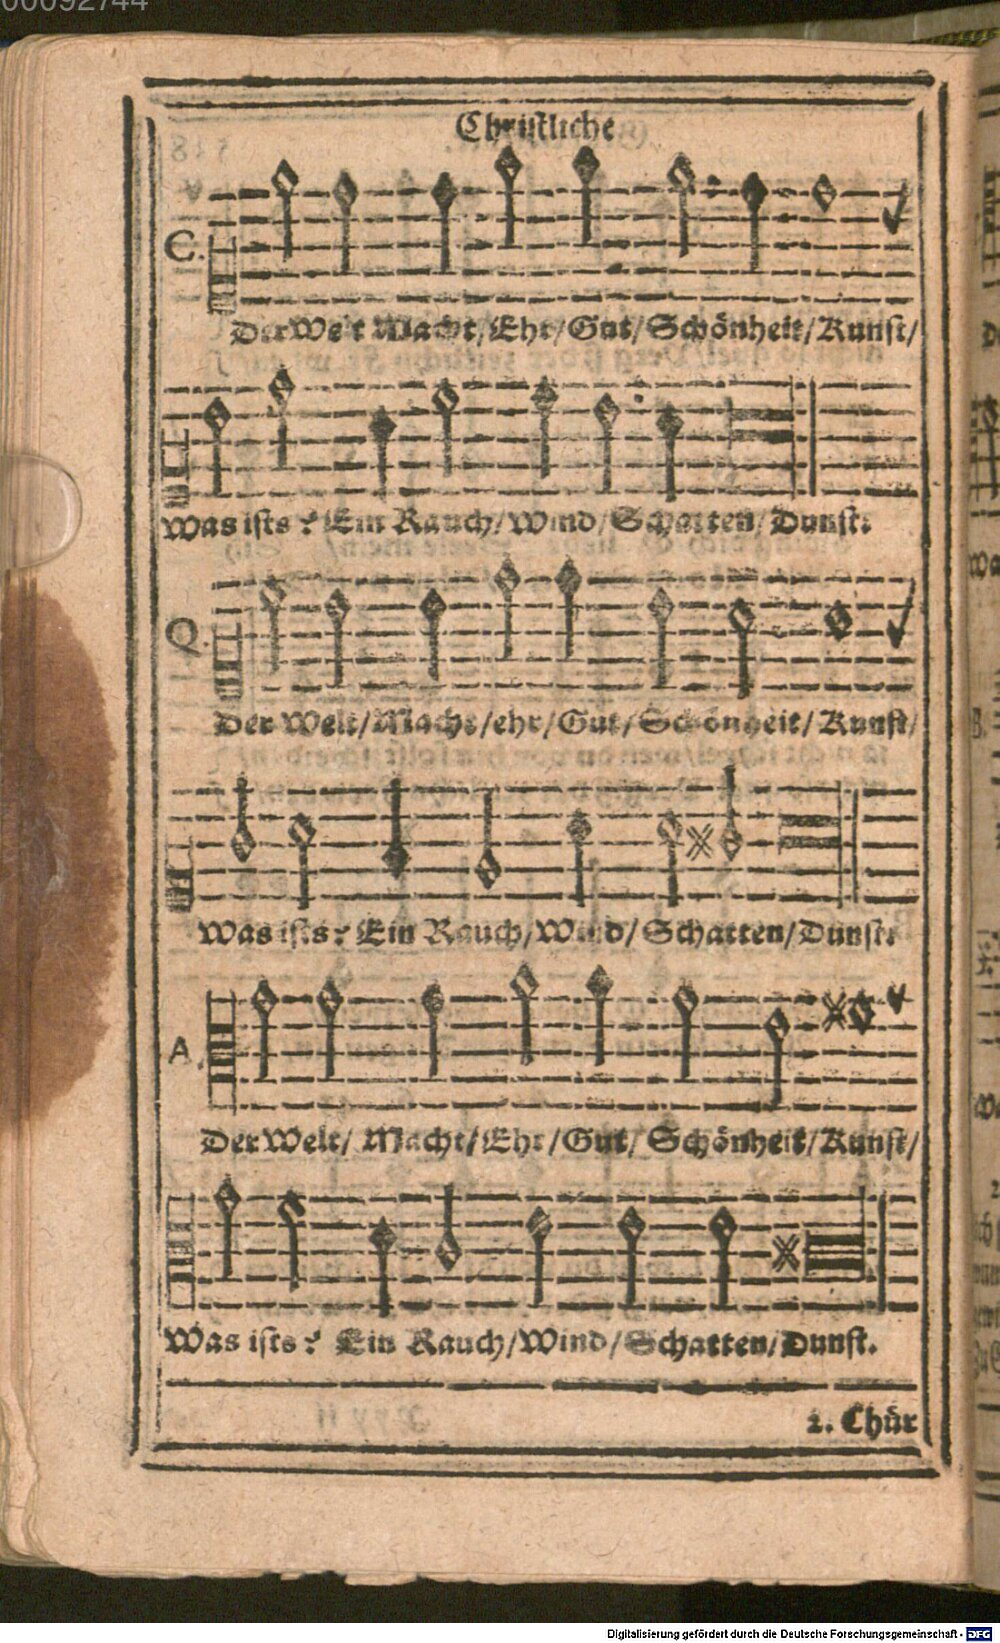 00092744
Christliche
C.
Der Welt Macht/Ehr/Gut/Schönheit/Kunst/
Was ists? Ein Rauch/Wind/Schatten/Dunst.
Q.
Der Welt/Macht/ehr/Gut/Schönheit/Kunst/
Was ists? Ein Rauch/Wind/Schatten/Dunst.
A.
Der Welt/Macht/Ehr/Gut/Schönheit/Kunst/
Was ists? Ein Rauch/Wind/Schatten/Dunst.
2. Chür
Digitalisierung gefördert durch die Deutsche Forschungsgemeinschaft - DFG